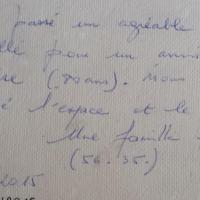 passé un agréable
pour un anni
(80 ans). Nous
é l'espace et le
Une famille
(56. 35.)
2015